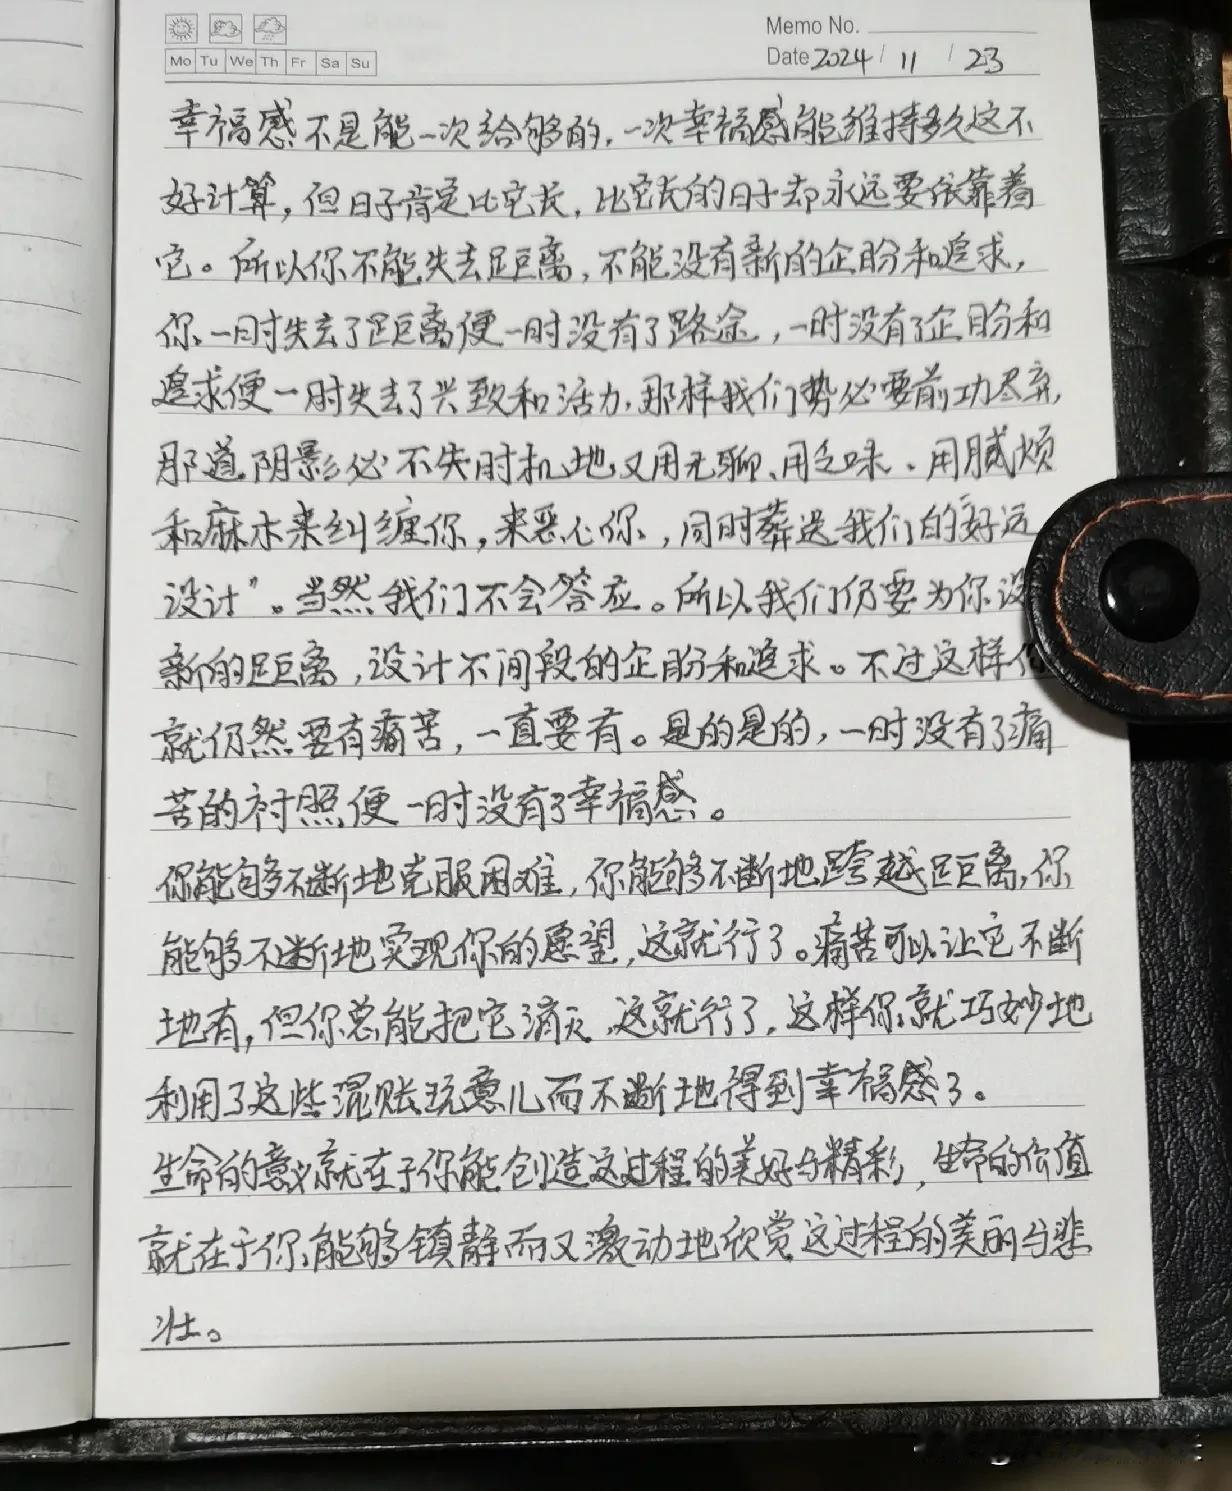 Memo No.
Mo Tu We Th Fr Sa Su
Date 2024 / 11 / 23
幸福感不是能一次给够的，一次幸福感能维持多久这不
好计算，但日子肯定比它长，比它长的日子却永远要依靠着
它。所以你不能失去距离，不能没有新的企盼和追求，
你一时失去了距离便一时没有了路途，一时没有了企盼和
追求便一时失去了兴致和活力，那样我们势必要前功尽弃，
那道阴影必不失时机地又用无聊、用乏味、用腻烦
和麻木来纠缠你，来恶心你，同时葬送我们的好运
设计”。当然我们不会答应。所以我们仍要为你设
新的距离，设计不间段的企盼和追求。不过这样
就仍然要有痛苦，一直要有。是的是的，一时没有了痛
苦的衬照便一时没有了幸福感。
你能够不断地克服困难，你能够不断地跨越距离，你
能够不断地实现你的愿望，这就行了。痛苦可以让它不断
地有，但你总能把它消灭，这就行了，这样你就巧妙地
利用了这些混账玩意儿而不断地得到幸福感了。
生命的意义就在于你能创造这过程的美好与精彩，生命的价值
就在于你能够镇静而又激动地欣赏这过程的美丽与悲
壮。